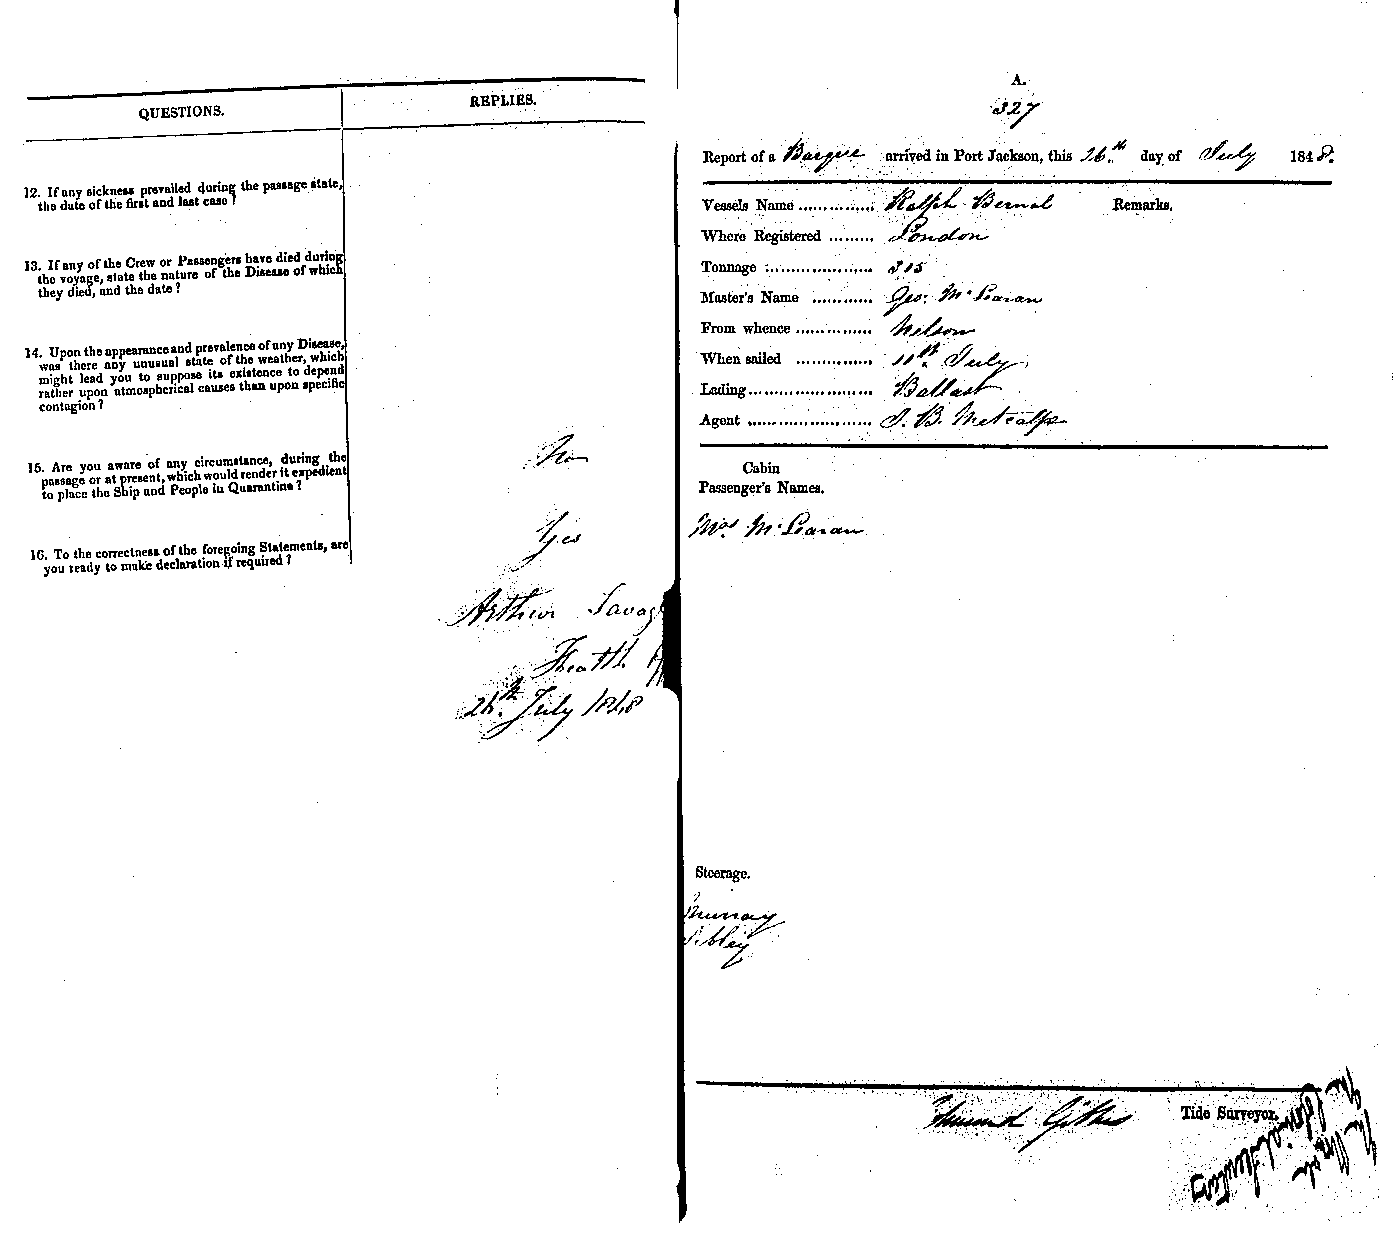 QUESTIONS.
REPLIES.
12. If any sickness prevailed during the passage state,
the date of the first and last case ?
13. If any of the Crew or Passengers have died during
the voyage, state the nature of the Disease of which
they died, and the date ?
14. Upon the appearance and prevalence of any Disease,
was there any unusual state of the weather, which
might lead you to suppose its existence to depend
rather upon atmospherical causes than upon specific
contagion ?
15. Are you aware of any circumstance, during the
passage or at present, which would render it expedient
to place the Ship and People in Quarantine ?
No
16. To the correctness of the foregoing Statements, are
you ready to make declaration if required ?
Yes
Arthur Savag
Health
26th July 1848
A.
327
Report of a Barque arrived in Port Jackson, this 26.th day of July 1848.
Vessels Name .............. Ralph Bernal Remarks.
Where Registered ......... London
Tonnage .................... 315
Master's Name ............ Geo. McLaran
From whence ............... Nelson
When sailed .............. 11th July
Lading ....................... Ballast
Agent ........................ S. B. Metcalfe
Cabin
Passenger's Names.
Mrs. McLaran
Steerage.
Murray
Sibley
Tide Surveyor.